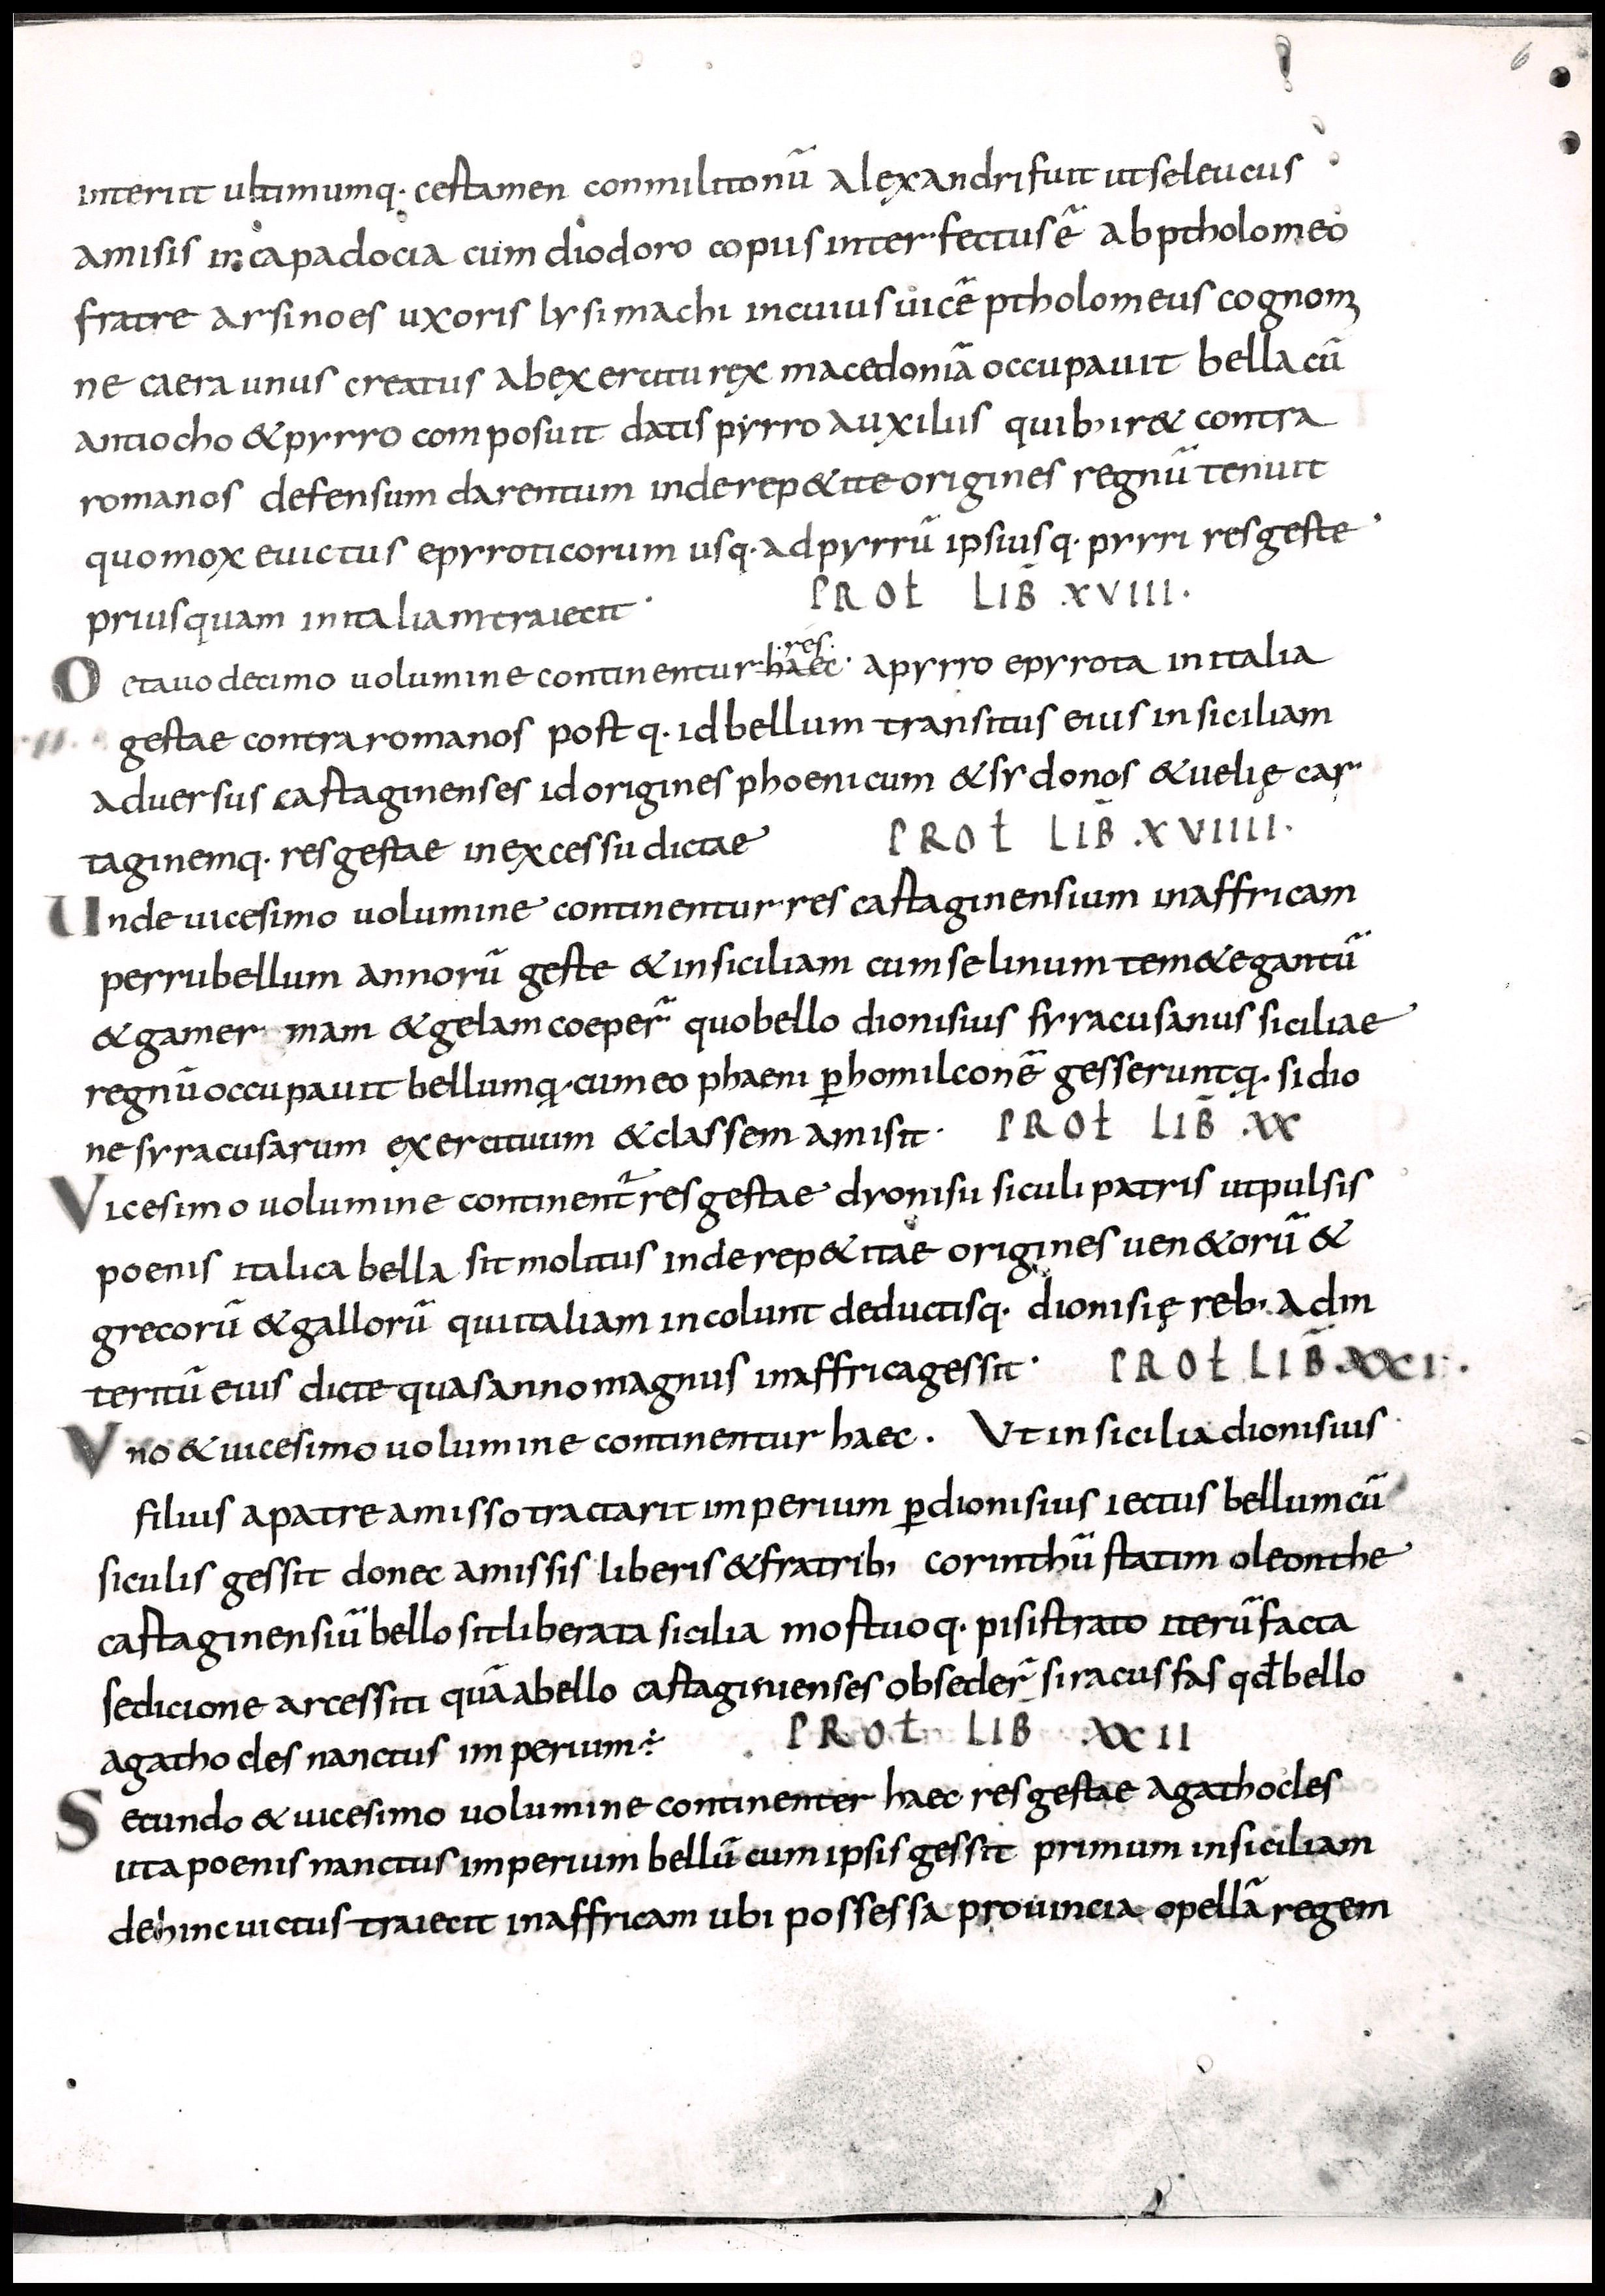 6
interiit ultimumq· certamen conmilitonū alexandri fuit ut seleucus
amisis in capadocia cum diodoro copus interfectus ē ab ptholomeo
fratre arsinoes uxoris lysimachi in cuius uicē ptholomeus cognom
ne caeraunus creatus ab exercitu rex macedoniā occupauit bella cū
antiocho & pyrro composuit datis pyrro auxiliis quib; ir& contra
romanos defensum darentum inde rep&ite origines regnū tenuit
quo mox euictus epyroticorum usq· ad pyrrū ipsiusq· pyrri res geste
priusquam in italiam traiecit· PROŁ LIB̄ XVIII·
Octauo decimo uolumine continentur haec· res· a pyrro epyrota in italia
gestae contra romanos postq· id bellum transitus eius in siciliam
aduersus cartaginenses id origines phoenicum & sydonos & uelię car
taginemq· res gestae in excessu dictae PROŁ LIB̄ XVIIII·
Unde uicesimo uolumine continentur res cartaginensium in affricam
per rubellum annorū geste & in siciliam cum selinum tem& egantū
& gamer mam & gelam coeper̄ quo bello dionisius syracusanus siciliae
regnū occupauit bellumq· cum eo phaeni ꝑ homilconē gesseruntq· sidio
ne syracusarum exercituum & classem amisit· PROŁ LIB̄ XX
Vicesimo uolumine continent̄ res gestae dyonisii siculi patris ut pulsis
poenis italica bella sit molitus inde rep&itae origines uen&orū &
grecorū & gallorū qui italiam incolunt deductisq· dionisię reb; ad in
teritū eius dicte quas anno magnus in affrica gessit· PROŁ LIB̄ XXI·
Vno & uicesimo uolumine continentur haec· Vt in sicilia dionisius
filius a patre amisso tractarit imperium ꝑ dionisius iectus bellum cū
siculis gessit donec amissis liberis & fratrib; corinthū statim oleonthe
cartaginensiū bello sit liberata sicilia mortuoq· pisistrato iterū facta
sedicione arcessiti quā a bello cartaginienses obseder̄ siracussas qđ bello
agathocles nanctus imperium PROŁ LIB XXII
Secundo & uicesimo uolumine continenter haec res gestae agathocles
ut a poenis nanctus imperium bellū cum ipsis gessit primum in siciliam
dehinc uictus traiecit in affricam ubi possessa prouincia opellā regem